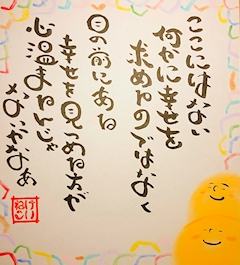 ここにはない
何かに幸せを
求めるのではなく
目の前にある
幸せを見つめる方が
心温まるんじゃ
ないかなぁ